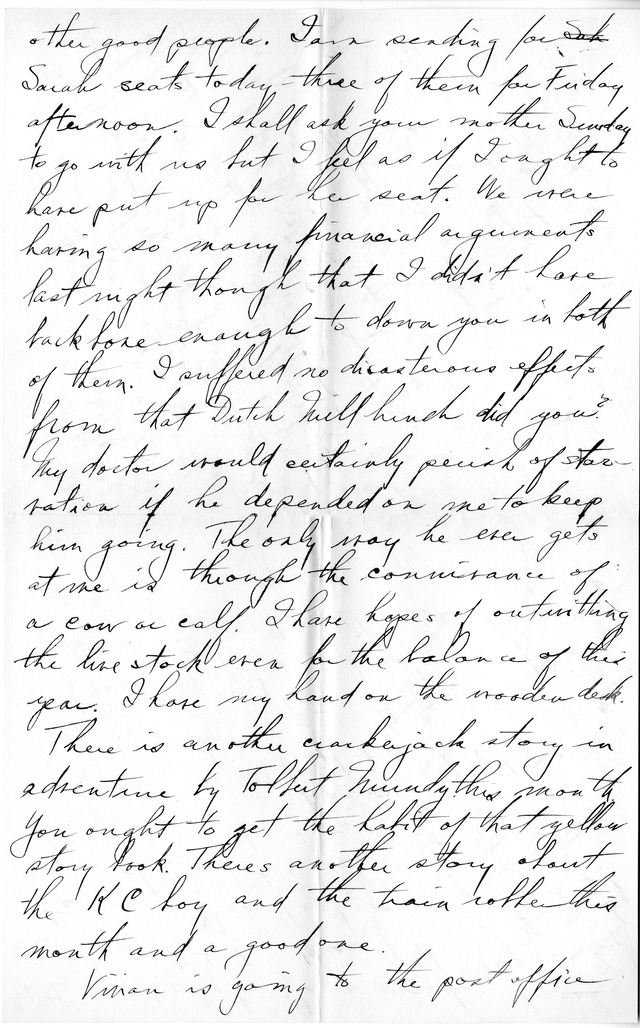 other good people. I am sending for Sah
Sarah seats today - three of them for Friday
afternoon. I shall ask your mother Sunday
to go with us but I feel as if I ought to
have put up for her seat. We were
having so many financial arguments
last night though that I didn't have
backbone enough to down you in both
of them. I suffered no disasterous effects
from that Dutch Mill lunch did you?
My doctor would certainly perish of star-
vation if he depended on me to keep
him going. The only way he ever gets
at me is through the connivance of
a cow or calf. I have hopes of outwitting
the live stock even for the balance of this
year. I have my hand on the wooden desk.
There is another crackerjack story in
adventure by Tolbert Mundy this month
You ought to get the habit of that yellow
story book. Theres another story about
the K C boy and the train robber this
month and a good one.
Vivian is going to the post office